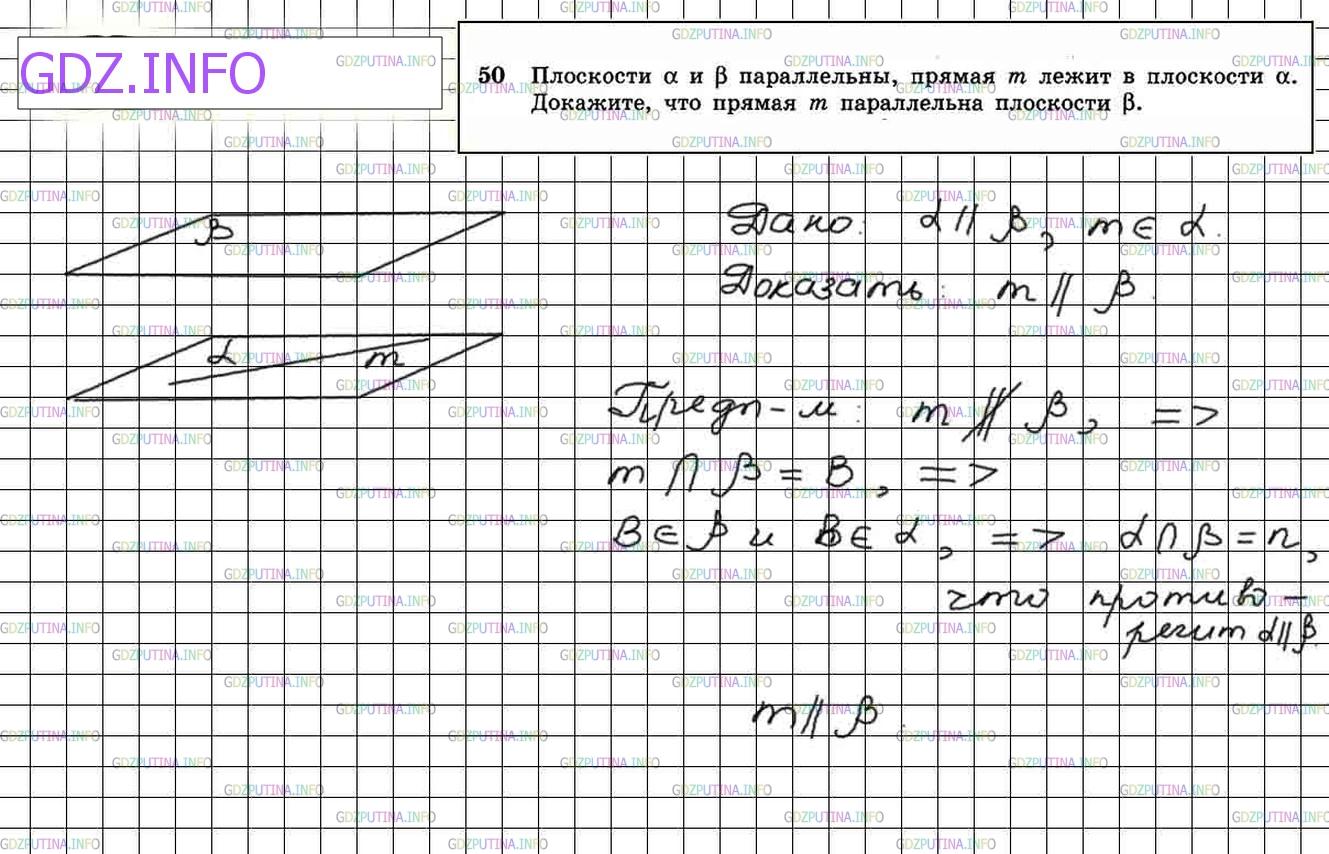 GDZ.INFO
50 Плоскости α и β параллельны, прямая m лежит в плоскости α.
Докажите, что прямая m параллельна плоскости β.
β
α
m
Дано: α || β, m ∈ α.
Доказать: m || β.
Предп-м: m ∦ β, =>
m ∩ β = B, =>
B ∈ β и B ∈ α, => α ∩ β = n,
что противо-
речит α || β.
m || β.
GDZPUTINA.INFO